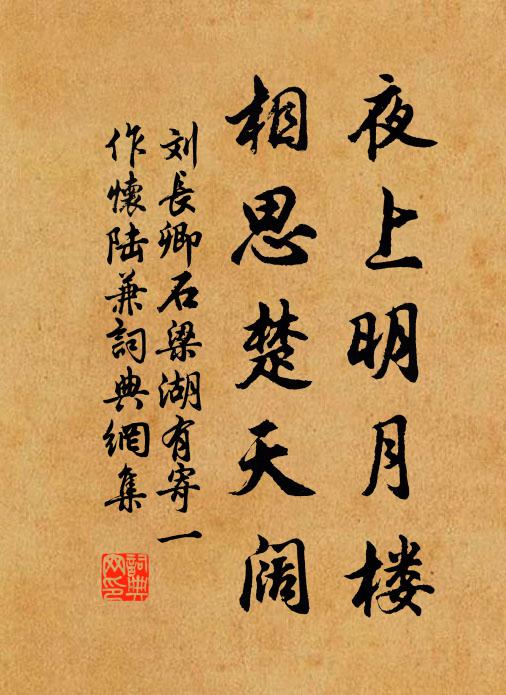 夜上明月楼
相思楚天阔
刘長卿石梁湖有寄一
作懷陆兼詞典網集
詞典
网印